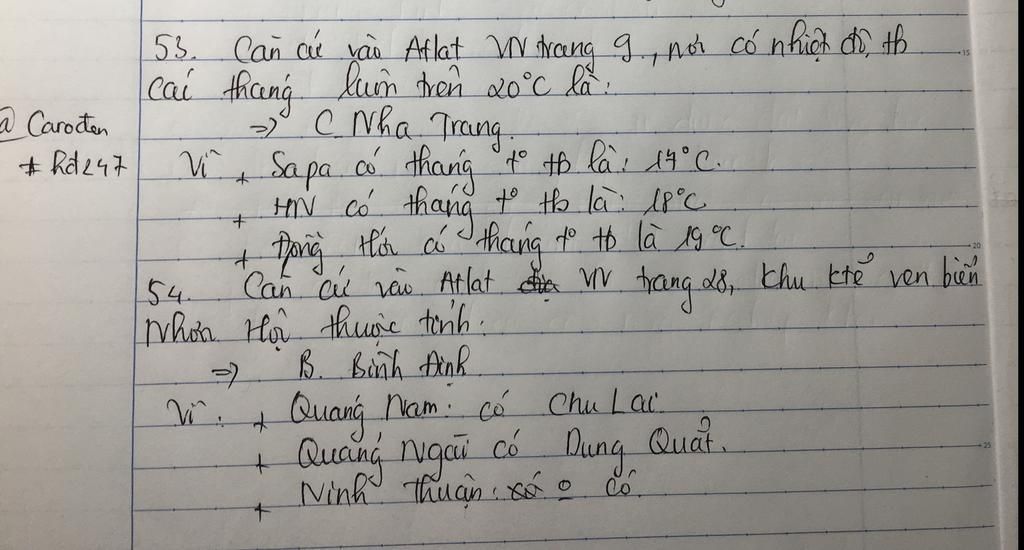 53. Căn cứ vào Atlat VN trang 9, nơi có nhiệt độ tb
các tháng luôn trên 20°C là:
@ Caroten
=> C. Nha Trang.
* hd247
Vì + Sapa có tháng t° tb là: 17°C.
+ HN có tháng t° tb là: 18°C
+ Đồng Hới có tháng t° tb là 19°C.
54. Căn cứ vào Atlat VN trang 28, khu ktế ven biển
Nhơn Hội thuộc tỉnh:
=> B. Bình Định
Vì: + Quảng Nam: có Chu Lai.
+ Quảng Ngãi có Dung Quất.
+ Ninh thuận: o có.